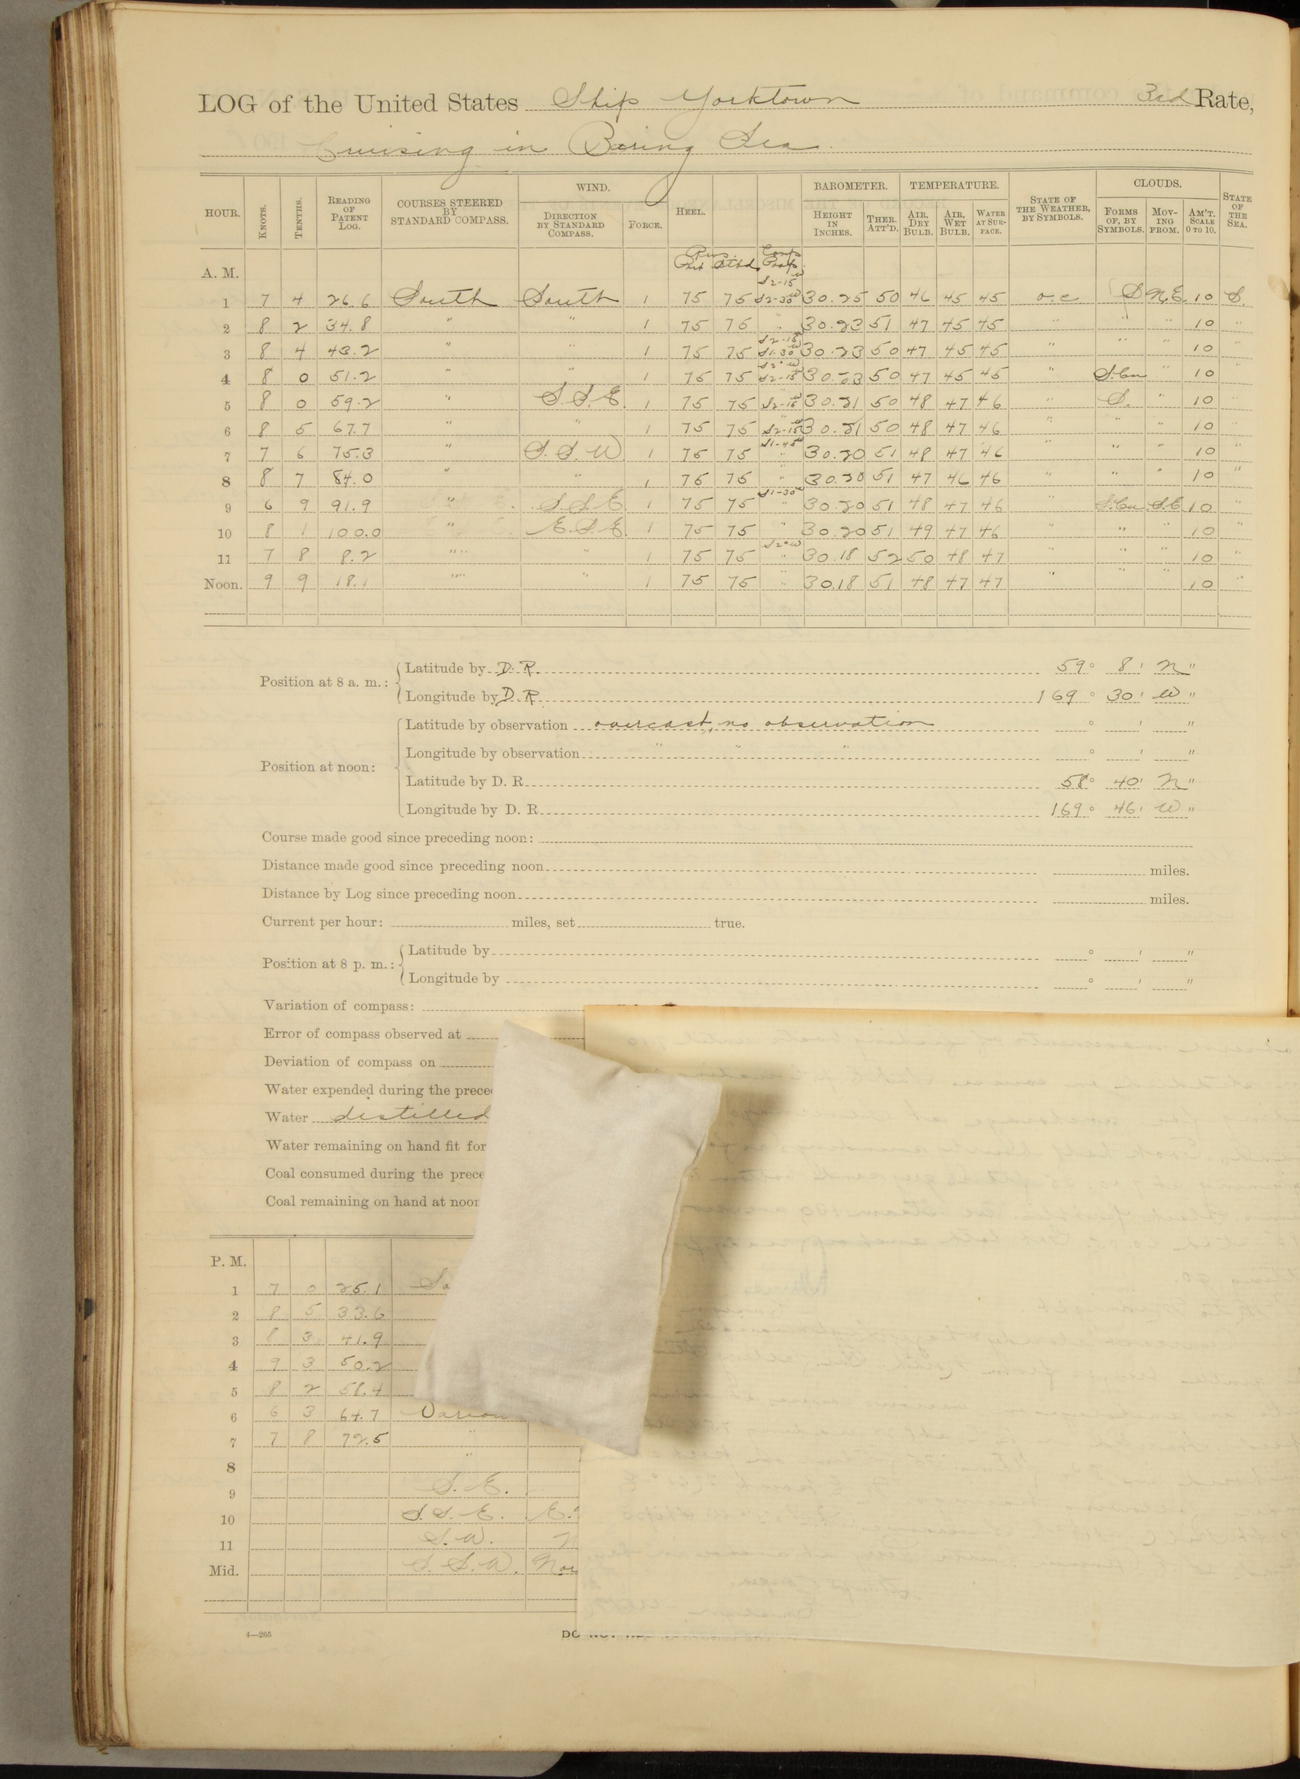 LOG of the United States Ship Yorktown 3rd Rate,
Cruising in Bering Sea.
HOUR. KNOTS. TENTHS. READING OF PATENT LOG. COURSES STEERED BY STANDARD COMPASS. WIND. DIRECTION BY STANDARD COMPASS. FORCE. HEEL. BAROMETER. HEIGHT IN INCHES. THER. ATT'D. TEMPERATURE. AIR, DRY BULB. AIR, WET BULB. WATER AT SURFACE. STATE OF THE WEATHER, BY SYMBOLS. CLOUDS. FORMS OF, BY SYMBOLS. MOVING FROM. AM'T. SCALE 0 TO 10. STATE OF THE SEA.
A. M. Stbd
1 7 4 26.6 South South 1 75 75 S2-15 S2-30 W 30.25 50 46 45 45 o.c. S N.E. 10 S.
2 8 2 34.8 " " 1 75 76 " 30.23 51 47 45 45 " " " 10 "
3 8 4 43.2 " " 1 75 75 S2-15 S1-30 W 30.23 50 47 45 45 " " " 10 "
4 8 0 51.2 " " 1 76 75 S2° W S2-15 30.23 50 47 45 45 " S.Cu " 10 "
5 8 0 59.2 " S.S.E. 1 75 75 S2-15 30.21 50 48 47 46 " S. " 10 "
6 8 5 67.7 " " 1 75 75 S2-15 30.21 50 48 47 46 " " " 10 "
7 7 6 75.3 " S.S.W 1 76 75 S1-45 " 30.20 51 48 47 46 " " 10 "
8 8 7 84.0 " " 1 76 76 " 30.20 51 47 46 46 " " " 10 "
9 6 9 91.9 " S.S.E 1 75 75 S1-30 " 30.20 51 48 47 46 " S.Cu S.E. 10 "
10 8 1 100.0 " E.S.E 1 75 75 " 30.20 51 49 47 46 " " " 10 "
11 7 8 8.2 " " 1 75 75 S2° W " 30.18 52 50 48 47 " " " 10 "
Noon. 9 9 18.1 " " 1 75 76 " 30.18 51 48 47 47 " " " 10 "
Position at 8 a. m.: Latitude by D. R. 59° 8' N "
Longitude by D. R 169° 30' W "
Position at noon: Latitude by observation overcast, no observation ° ' "
Longitude by observation " " " ° ' "
Latitude by D. R. 58° 40' N "
Longitude by D. R. 169° 46' W "
Course made good since preceding noon:
Distance made good since preceding noon miles.
Distance by Log since preceding noon miles.
Current per hour: miles, set true.
Position at 8 p. m.: Latitude by ° ' "
Longitude by ° ' "
Variation of compass:
Error of compass observed at
Deviation of compass on
Water expended during the prece
Water distilled
Water remaining on hand fit for
Coal consumed during the prece
Coal remaining on hand at noon
P. M.
1 7 0 25.1 So
2 8 5 33.6
3 8 3 41.9
4 9 3 50.2
5 8 2 58.4
6 6 3 64.7 Variou
7 7 8 72.5 "
8 "
9 S. E.
10 S. S. E. E.
11 S. W. N
Mid. S. S. W. Nor
4—265
DO NOT